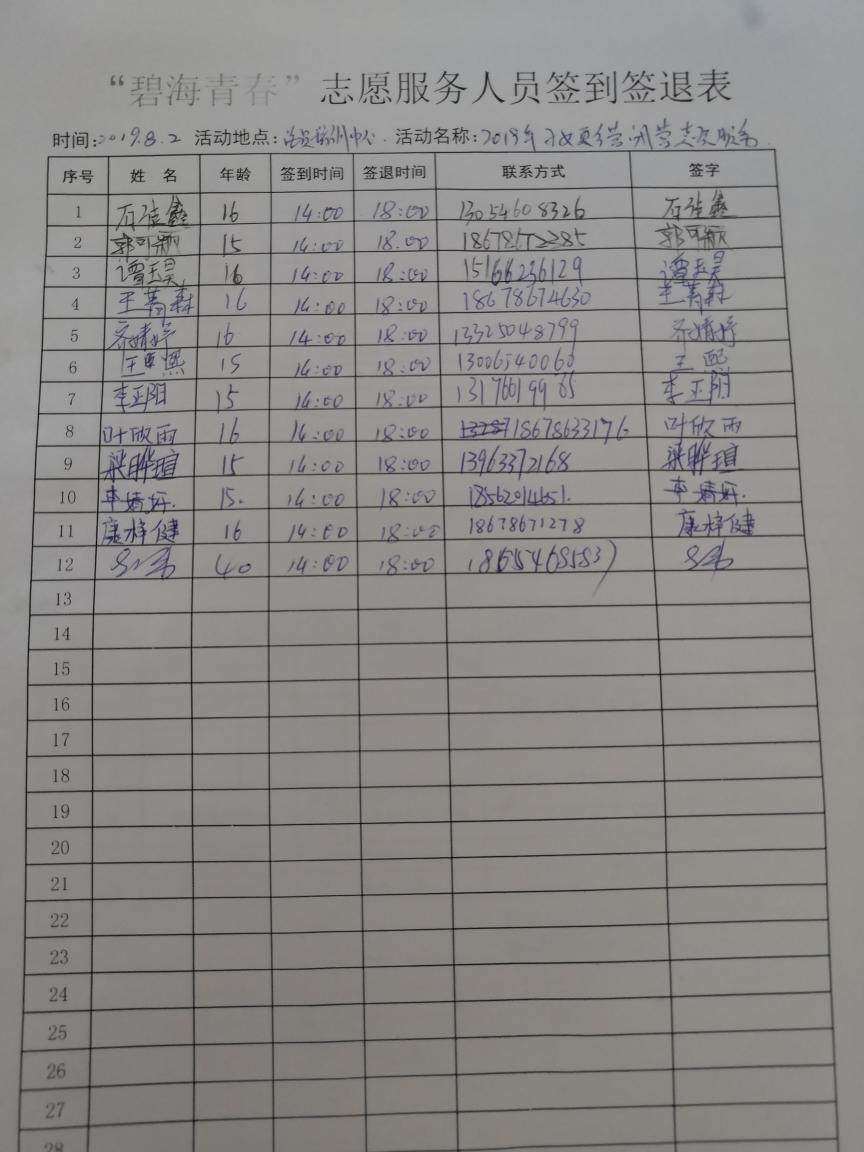 “碧海青春”志愿服务人员签到签退表
时间:2019.8.2 活动地点: 培训中心. 活动名称:2019年
序号 姓 名 年龄 签到时间 签退时间 联系方式 签字
1 石佳鑫 16 14:00 18:00 13054608326 石佳鑫
2 郭可颖 15 14:00 18:00 18678672385 郭可颖
3 谭玉昊 16 14:00 18:00 15166236129 谭玉昊
4 王菁森 16 14:00 18:00 18678674630 王菁森
5 齐婧婷 16 14:00 18:00 13325048799 齐婧婷
6 王 熙 15 14:00 18:00 13006540060 王 熙
7 李正阳 15 14:00 18:00 13176019965 李正阳
8 叶欣雨 16 14:00 18:00 18678633176 叶欣雨
9 梁晔瑄 15 14:00 18:00 13963372168 梁晔瑄
10 李婧妍. 15. 14:00 18:00 18562014651. 李婧妍.
11 康梓健 16 14:00 18:00 18678671278 康梓健
12 40 14:00 18:00 18654685837
13
14
15
16
17
18
19
20
21
22
23
24
25
26
27
28